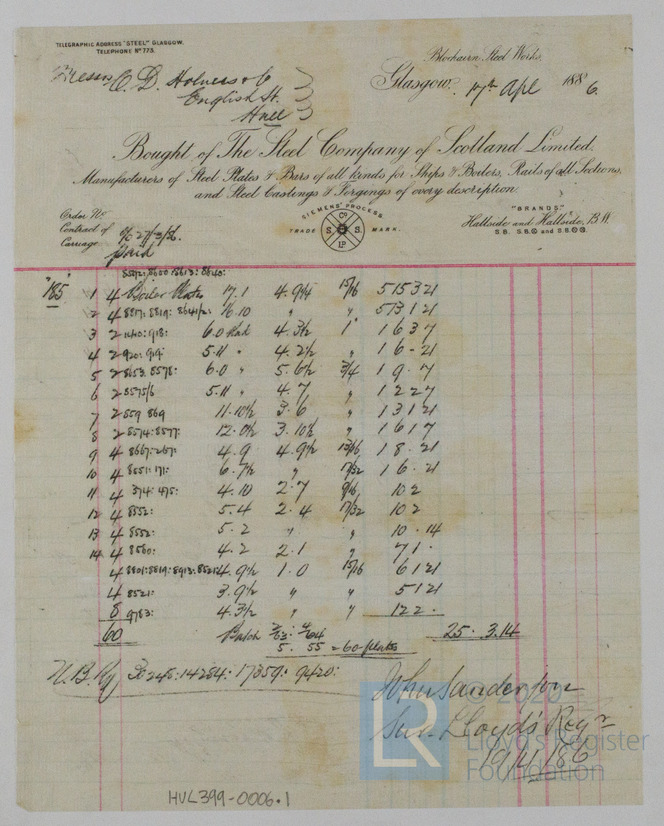 TELEGRAPHIC ADDRESS "STEEL" GLASGOW.
TELEPHONE Nº 773.
Blochairn Steel Works,
Glasgow, 17th Apl 1886.
Messrs C. D. Holmes & Co
English St.
Hull
Bought of The Steel Company of Scotland Limited.
Manufacturers of Steel Plates & Bars of all kinds for Ships & Boilers, Rails of all Sections,
and Steel Castings & Forgings of every description
Order No
Contract of 27/3/86.
Carriage paid
SIEMENS' PROCESS.
TRADE MARK.
Co S S LD
"BRANDS"
Hallside and Hallside, B.W.
S.B. S.B. and S.B.
8592: 8600: 8613: 8640:
"185" 1 4 Boiler Plates 17.1 4.9¼ 15/16 5 15 3 21
2 4 8817: 8819: 8641/2: 16.10 " " 5 13 1 21
3 2 1140: 918: 6.0 4.3½ 1" 1 6 3 7
4 2 920: 919: 5.11 " 4.2½ " 1 6 - 21
5 2 8653. 8578: 6.0 " 5.6½ 3/4 1 9 . 7
6 2 8575/6 5.11 " 4.7 " 1 2 2 7
7 2 559 869 11.10½ 3.6 " 1 3 1 21
8 2 8574: 8577: 12.0½ 3.10½ " 1 6 1 7
9 4 8667: 267: 4.9 4.9½ 13/16 1 8 . 21
10 4 8651: 171: 6.7½ " 17/32 1 6 . 21
11 4 374: 475: 4.10 2.7 9/16 10 2
12 4 8552: 5.4 2.4 17/32 10 2
13 4 8552: 5.2 " " 10 . 14
14 4 8560: 4.2 2.1 " 7 1 .
4 8801: 8819: 8913: 8521: 4.9½ 1.0 15/16 6 1 21
4 8521: 3.9½ " " 5 1 21
8 9783: 4.3½ " " 12 2 .
60 25. 3. 14
5. 55 = 60 plates
N. B. Ry 245: 14284: 17359: 9420:
John Sanderson
Sur. Lloyd's Regr
19/4/86
© 2020
LR
Lloyd's Register
Foundation
HUL399-0006.1